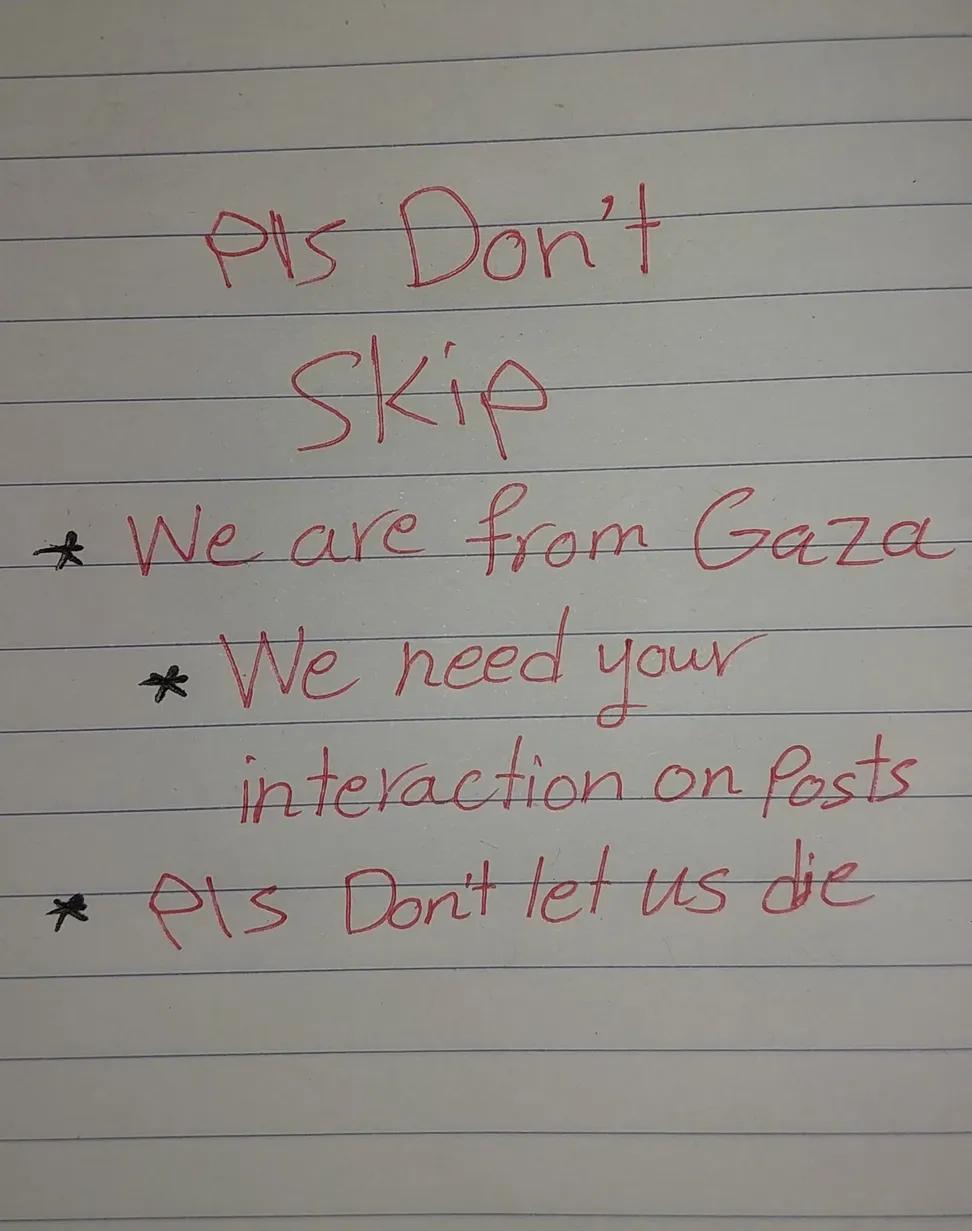 Pls Don't
Skip
* We are from Gaza
* We need your
interaction on Posts
* Pls Don't let us die